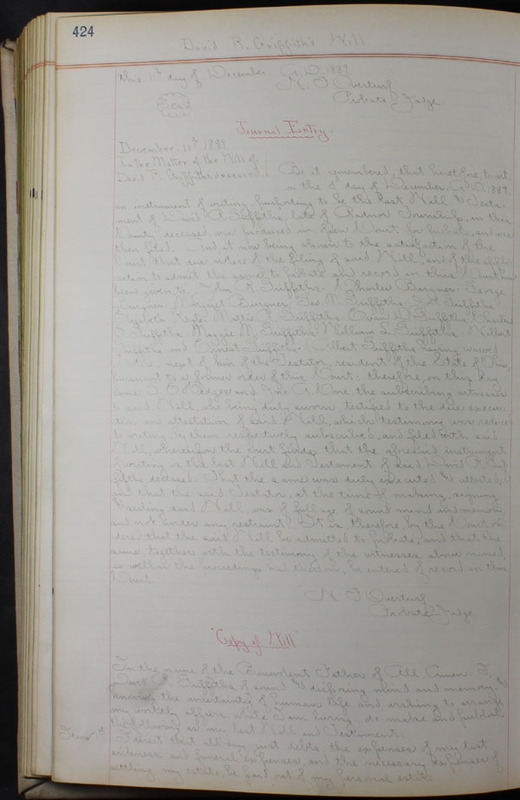 424
David R. Griffiths Will
this 11th day of December A.D. 1889.
N. F. Overturf
Seal
Probate Judge
Journal Entry.
December 11th 1889
In the Matter of the Will of
David R. Griffiths deceased
Be it remembered, that heretofore, to wit
on the 5" day of December, A.D. 1889
an instrument of writing purporting to be the Last Will & Testa-
ment of David R. Griffiths, late of Radnor Township, in this
County, deceased, was produced in open Court for probate, and was
then filed. And it now being shown to the satisfaction of the
Court, that due notice of the filing of said Will, and of the appli-
cation to admit the same to probate and record in this Court has
been given to R. Griffiths, Charles Burgner, George
Burgner, Margaret Burgner, Griffiths, Griffiths,
Griffiths, Griffiths, Charles
Griffiths, Maggie M. Griffiths, William L. Griffiths, Wilbert
Griffiths and Ernest Griffiths, Albert Griffiths having waived
next of kin of the Testator, resident of the State of Ohio,
pursuant to a former order of this Court; therefore, on this day
came Hodges and A. Cone the subscribing witnesses
to said Will, who being duly sworn testified to the due execu-
tion and attestation of said Will, which testimony was reduced
to writing, by them respectively subscribed, and filed with said
Will, whereupon the Court finds, that the aforesaid instrument
of writing is the last Will and Testament of said David R. Grif-
fiths deceased. That the same was duly executed & attested,
and that the said Testator, at the time of making, signing
said Will, was of full age, of sound mind and memory
and not under any restraint. It is, therefore, by the Court or-
dered that the said Will be admitted to probate, and that the
same, together with the testimony of the witnesses above named,
as well as the proceedings had therein, be entered of record in this
Court.
N. F. Overturf
Probate Judge
"Copy of Will"
In the name of the Benevolent Father of All Amen. I,
David R. Griffiths of sound & disposing mind and memory &
knowing the uncertainty of human life and wishing to arrange
my worldly affairs while I am living, do make and publish
the following as my last Will and Testament.
Item 1st
I direct that all my just debts, the expenses of my last
sickness and funeral expenses, and the necessary expenses of
settling my estate, be paid out of my personal estate.